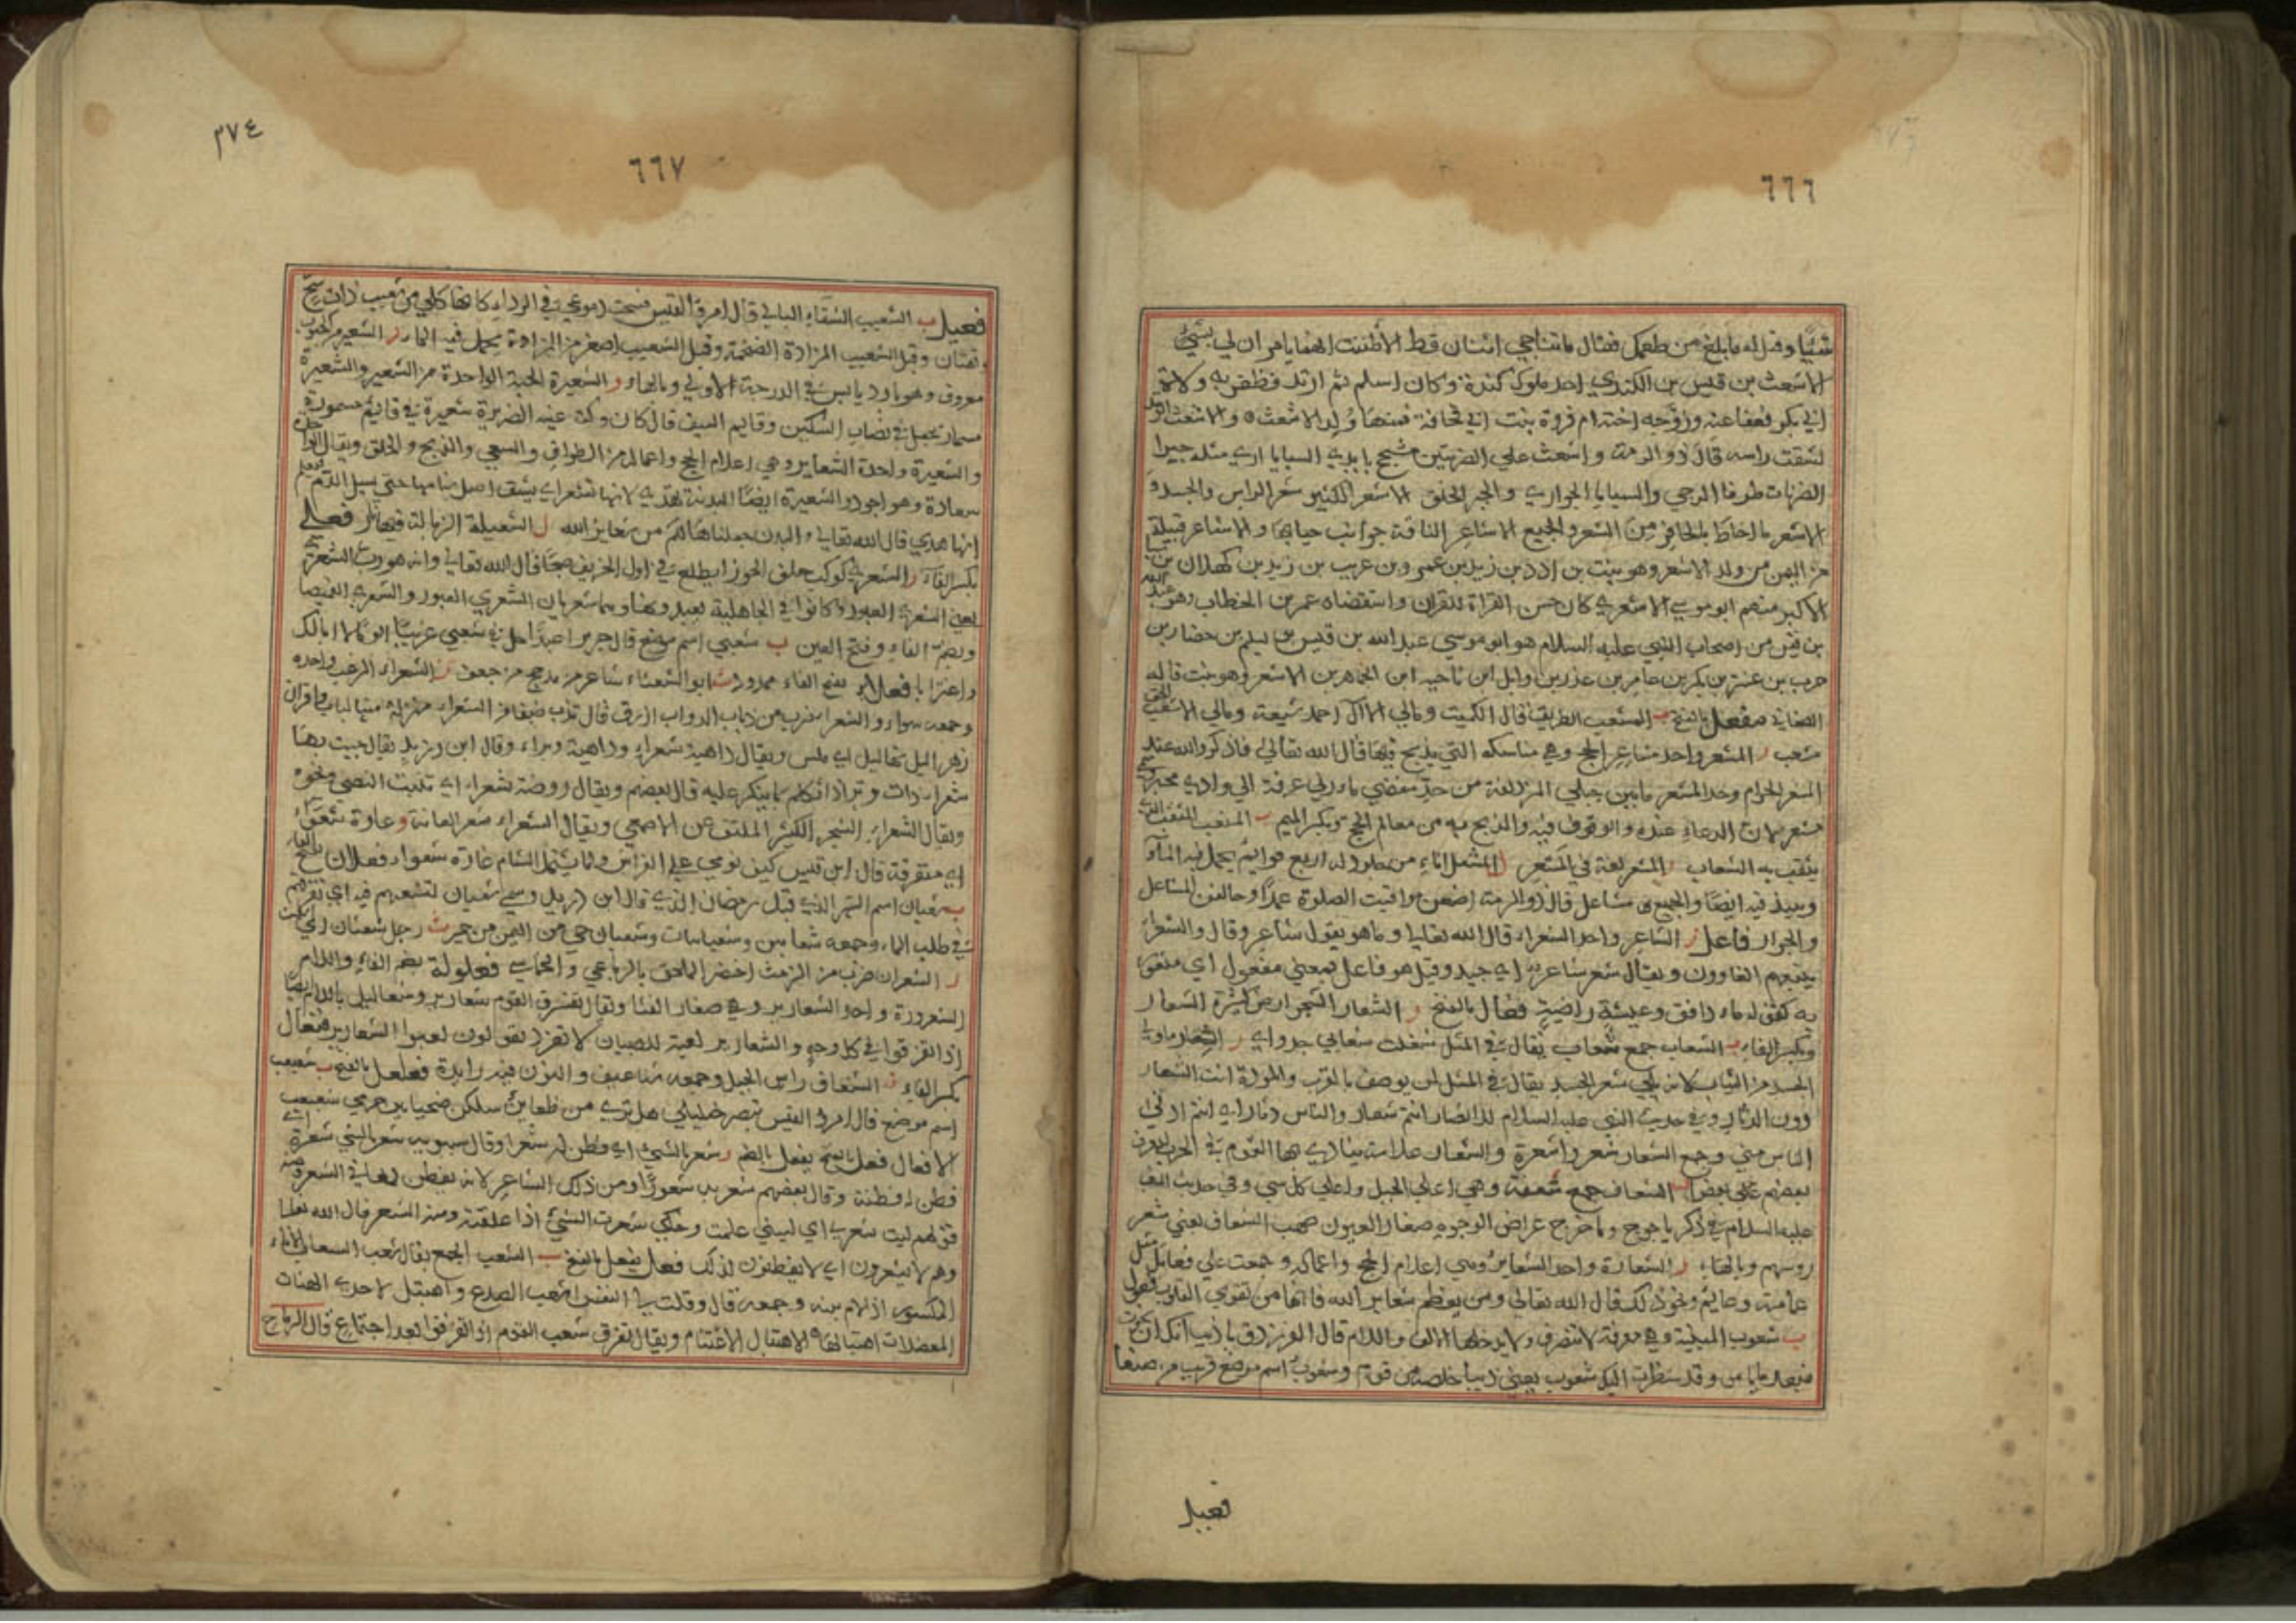 ٦٦٦
شيئا وقيل له ما بلغ من طمعك فقال ما تناجى اثنان قط الا ظننت انهما يامران لي بشيء
الاشعث بن قيس بن الكندي احد ملوك كندة وكان اسلم ثم ارتد فظفر به ولاة
ابي بكر فعفا عنه وزوجه اخته ام فروة بنت ابي قحافة فمنها ولد الاشعث والاشعث الوتد
لشعث راسه قال ذو الرمة واشعث علي الضرتين مشجج بايدي السبايا لا ترى مثله جبرا
الضرتان طرفا الرحي والسبايا الجواري والجبر الخلق الاشعر الكثير شعر الراس والجسد و
الاشعر ما احاط بالحافر من الشعر والجميع الاشاعر الناقة جوانب حيايها والاشاعر قبيلة
من اليمن من ولد الاشعر وهو نبت بن ادد بن زيد بن عمرو بن عريب بن زيد بن كهلان بن سبا
الاكبر منهم ابو موسي الاشعري كان حسن القراة للقران واستقضاه عمر بن الخطاب وهو عبد الله
بن قيس من اصحاب النبي عليه السلام هو ابو موسي عبد الله بن قيس بن سليم بن حضار بن
حرب بن عنتر بن بكر بن عامر بن عذر بن وايل بن ناجيه ابن الجماهر بن الاشعر وهو نبت قاله
الصغاني مفعل بالفتح ب المشعب الطريق قال الكميت ومالي الا ال احمد شيعة ومالي الا مشعب الحق
مشعب ر المشعر واحد مشاعر الحج وهي مناسكه التي يذبح فيها قال الله تعالي فاذكروا الله عند
المشعر الحرام وحد المشعر ما بين جبلي المزدلفة من حد مفضي مازمي عرفة الي وادي محسر وسمي
مشعر لان الدعاء عنده والوقوف فيه والذبح به من معالم الحج وبكسر الميم ب المشعب المثقب الذي
يثقب به الشعاب ر المشعر لغة في المشعر ل المشعل اناء من جلود له اربع قوايم يحمل فيه الماء
وينبذ فيه ايضا والجميع مشاعل قال ذو الرمة اضعن مواقيت الصلوة عمدا وحالفن المشاعل
والجرار فاعل ر الشاعر واحد الشعراء قال الله تعالي وما هو بقول شاعر وقال والشعراء
يتبعهم الغاوون ويقال شعر شاعر اي جيد وقيل هو فاعل بمعني مفعول اي مشعور
به كقوله ماء دافق وعيشة راضية فعال بالفتح ر الشعار الشجر ارض كثيرة الشعار
وبكسر الفاء ب الشعاب جمع شعاب يقال في المثل شغلت شعابي جدواي ر الشعار ما ولي
الجسد من الثياب لانه يلي شعر الجسد يقال في المثل لمن يوصف بالقرب والمودة انت الشعار
دون الدثار وفي حديث النبي عليه السلام للانصار انتم شعار والناس دثار اي انتم ادني
الناس مني وجمع الشعار شعر واشعرة والشعار علامة ينادي بها القوم في الحرب ليعرف
بعضهم علي بعض ف الشعاف جمع شعفة وهي اعلي الجبل واعلي كل شي وفي حديث النبي
عليه السلام في ذكر ياجوج وماجوج عراض الوجوه صغار العيون صهب الشعاف يعني شعر
روسهم وبالهاء ر الشعارة واحد الشعاير وهي اعلام الحج واعماله وجمعت علي فعايل مثل
عمامة وعمايم ونحو ذلك قال الله تعالي ومن يعظم شعاير الله فانها من تقوي القلوب فعول
ب شعوب المنية وهي معرفة لا تنصرف ولا يدخلها الالف واللام قال الفرزدق يا ذيب انك ان نجوت
فبعد ما ياس وقد نظرت اليك شعوب يعني ذيبا خلصه من قوم وشعوب اسم موضع قريب من صنعا
فعيل
٣٧٤
٦٦٧
فعيل ب الشعيب السقاء البالي قال امرؤ القيس فسحت دموعي في الرداء كانها كلي من شعيب ذات سح
وتهتان وقيل الشعيب المزادة الضخمة وقيل الشعيب اصغر من المزادة يحمل فيه الماء ر الشعير من الحبوب
معروف وهو بارد يابس في الدرجة الاولي وبالهاء ر الشعيرة الحبة الواحدة من الشعير والشعيرة
مسمار يجعل في نصاب السكين وقايم السيف قال كان وكت عينه الضريرة شعيرة في قايم مسمورة
والشعيرة واحدة الشعاير وهي اعلام الحج واعماله من الطواف والسعي والذبح والحلق ويقال الواحدة
شعارة وهو اجود والشعيرة ايضا البدنة تهدي لانها تشعر اي يشق اصل سنامها حتي يسيل الدم فيعلم
انها هدي قال الله تعالي والبدن جعلناها لكم من شعاير الله ل الشعيلة الذبالة فيها نار فعلي
بكسر الفاء ر الشعري كوكب خلف الجوزا يطلع في اول الخريف صبحا قال الله تعالي وانه هو رب الشعري
يعني الشعري العبور وكانوا في الجاهلية يعبدونها وهما شعريان الشعري العبور والشعري الغميصا
وبضم الفاء وفتح العين ب شعبي اسم موضع قال جرير اعبدا حل في شعبي غريبا الوما لا ابا لك
واغترابا فعلاء بفتح الفاء ممدود ث ابو الشعثاء شاعر من مذحج من جعف ر الشعراء الزغب واحده
وجمعه سواء والشعراء ضرب من ذباب الدواب ازرق قال تذب ضيفا من الشعراء منزله منها لبان واقران
زهر الليل شماليل اي ملس ويقال داهية شعراء وداهية وبراء وقال ابن دريد يقال جيت بها
شعراء ذات وبر اذا تكلم بما ينكر عليه قال بعضهم ويقال روضة شعراء اي تنبت النصي ونحوه
ويقال الشعراء الشجر الكثير الملتف عن الاصمعي ويقال الشعراء شعر العانة و غارة شعواء
اي متفرقة قال ابن قيس كيف نومي علي الفراش ولما يشمل الشام غارة شعواء فعلان بفتح الفاء
ب شعبان اسم الشهر الذي قبل رمضان الذي قال ابن دريد وسمي شعبان لتشعبهم فيه اي تفرقهم
في طلب الماء وجمعه شعابين وشعبانات وشعبان حي من اليمن من حمير ث رجل شعثان
ر الشعران ضرب من الرمث اخضر الملحق بالرباعي والخماسي فعلولة بضم الفاء واللام
ر الشعرورة واحد الشعارير وهي صغار القثا ويقال تفرق القوم شعارير وشعاليل باللام ايضا
اذا تفرقوا في كل وجه والشعارير لعبة للصبيان لا تفرد يقولون لعبوا الشعارير فنعال
بكسر الفاء ف الشنعاف راس الجبل وجمعه شناعيف والنون فيه زايدة فعلعل بالفتح ب شعبعب
اسم موضع قال امرؤ القيس تبصر خليلي هل تري من ظعاين سلكن ضحيا بين حزمي شعبعب
الافعال فعل بالفتح يفعل بالضم ر شعر بالشيء اي فطن له شعرا وقال سيبويه شعر بالشي شعرة اي
فطن له فطنة وقال بعضهم شعر به شعورا ومن ذلك الشاعر لانه يفطن لمعاني الشعر ومنه
قولهم ليت شعري اي ليتني علمت وحكي شعرت الشيء اذا علقته ومنه المشعر قال الله تعالي
وهم لا يشعرون اي لا يفطنون لذلك فعل يفعل بالفتح ب الشعب الجمع يقال شعب الشعاب الاناء
المكسور اذا لام بينه وجمعه قال وقلت يا النفس اشعب الصدع واهتبل لاحدي الهنات
المعضلات اهتبالها الاهتبال الاغتنام ويقال تفرق شعب القوم اذا تفرقوا بعد اجتماع قال الرماح